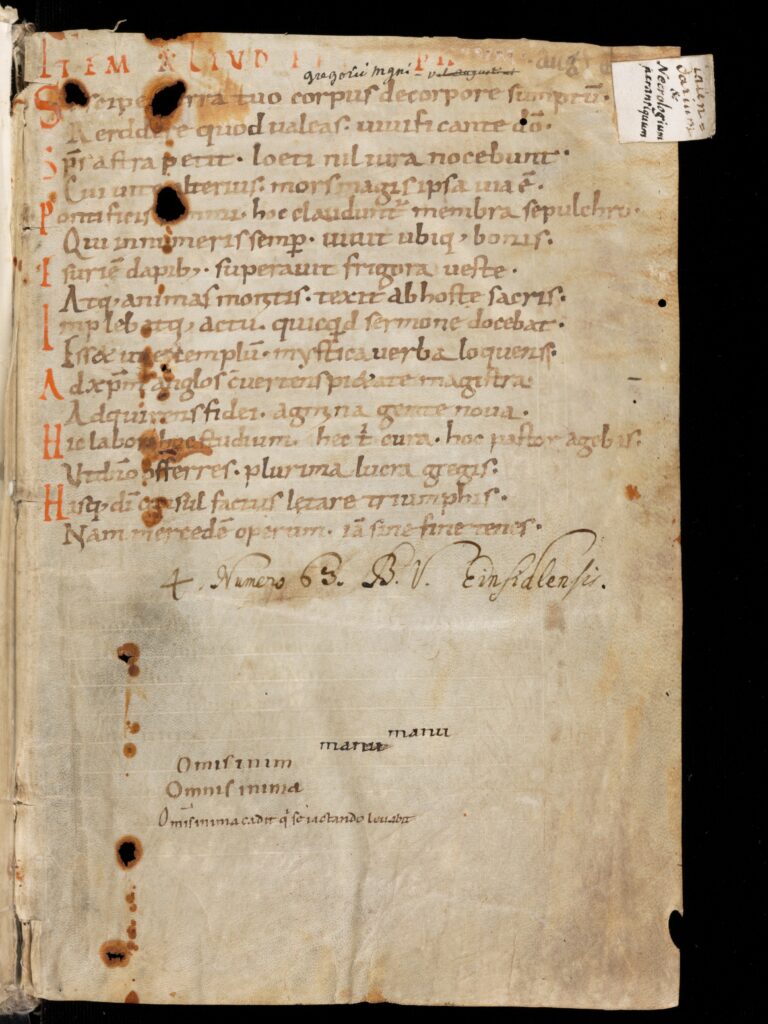 ITEM ALIVD
gregorii mgni - vel augustini
Suscipe terra tuo corpus decorpore sumptū·
Reddere quod valeas· vivificante dō·
Sps astra petit· loeti nil iura nocebunt·
Cui vite alterius· mors magis ipsa via ē·
Pontificis summi· hoc clauduntr̄ membra sepulchro·
Qui innumeris semp· vivit ubiq; bonis·
Esuriē dapib;· superavit frigora veste·
Atq; animas monitis· texit ab hoste sacris·
Implebatq; actu· quicqd sermone docebat·
Esset ut exemplū· mystica verba loquens·
Ad xpm anglos cvertens pietate magistra·
Adquirens fidei· agmina gente nova·
Hic labor hoc studium· hec t̄ cura· hoc pastor agebis·
Ut dnō offerres· plurima lucra gregis·
Hisq; dī consul factus letare triumphis·
Nam mercedē operum· iā sine fine tenes·
4. Numero 63. B. V. Einsidlensis.
manu
manu
Omisinim
Omnisinima
Omīsinima cadit q se iactando levabit
Calen=
darium
&
Necrologium
perantiquum